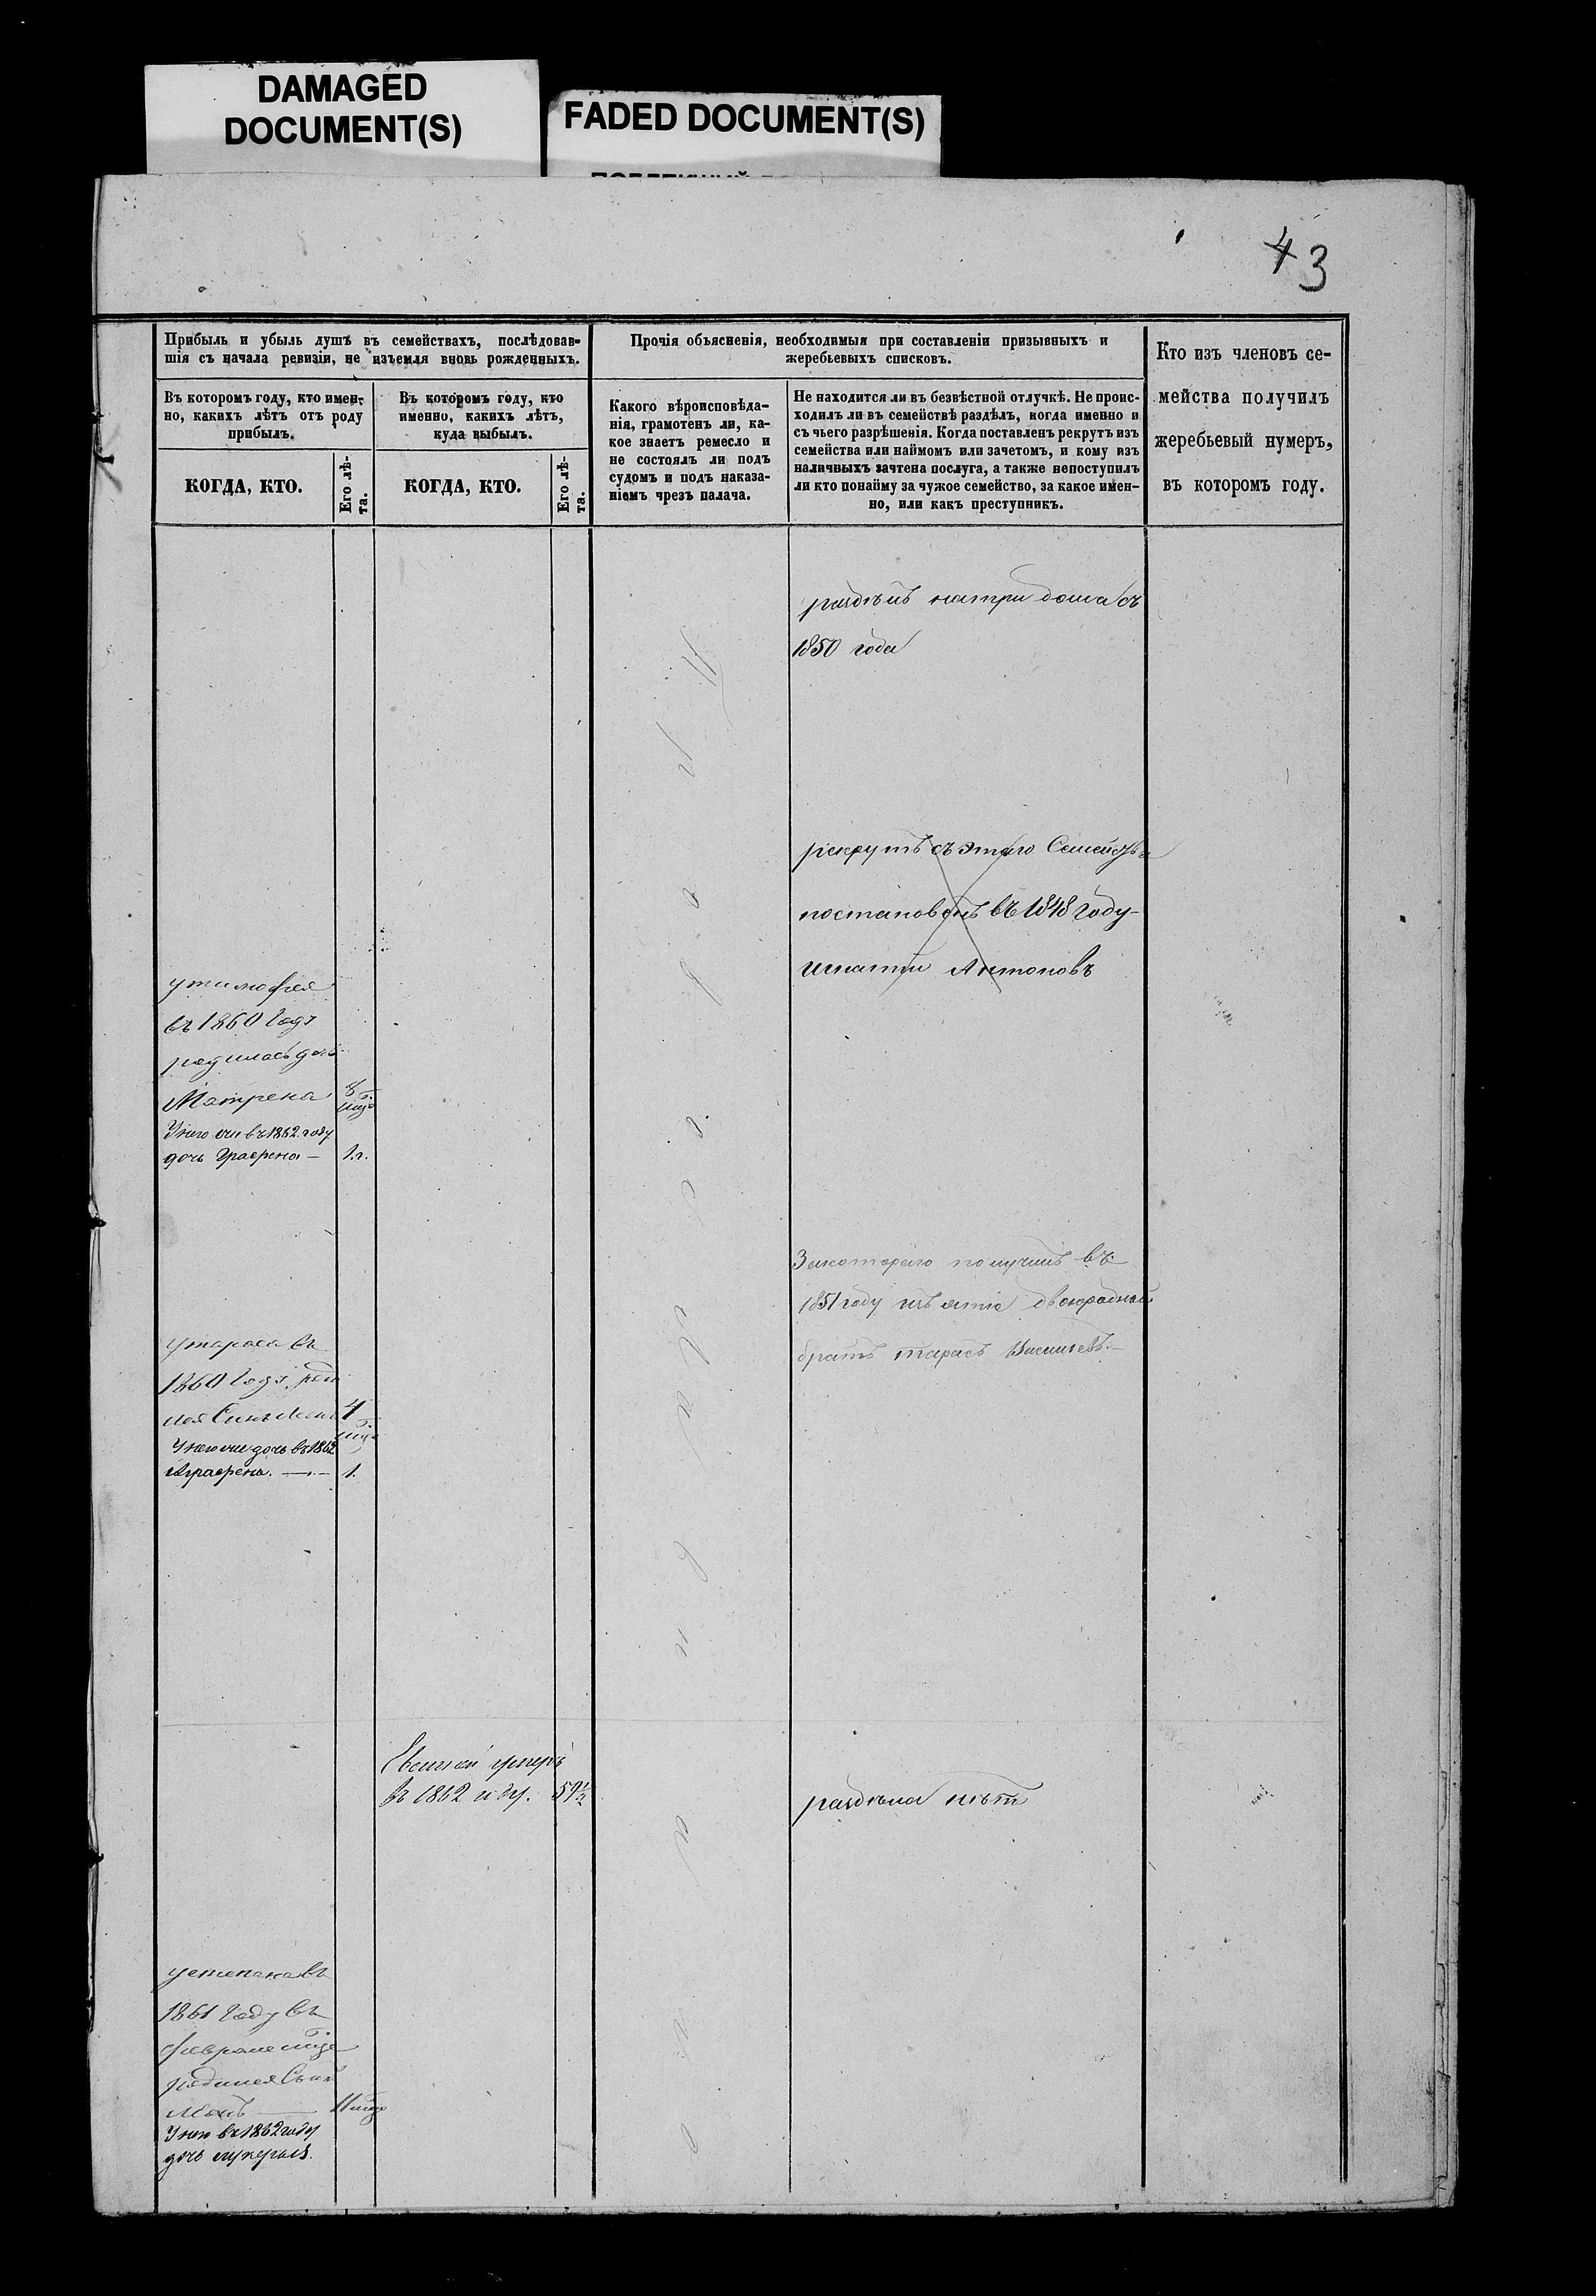 DAMAGED
DOCUMENT(S)
FADED DOCUMENT(S)
43
Прибыль и убыль душъ въ семействахъ, послѣдовав-
шія съ начала ревизіи, не изъемля вновь рожденныхъ.
Въ которомъ году, кто имен-
но, какихъ лѣтъ отъ роду
прибылъ.
КОГДА, КТО.
Его лѣ-
та.
Въ которомъ году, кто
именно, какихъ лѣтъ,
куда выбылъ.
КОГДА, КТО.
Его лѣ-
та.
Прочія объясненія, необходимыя при составленіи призывныхъ и
жеребьевыхъ списковъ.
Какого вѣроисповѣда-
нія, грамотенъ ли, ка-
кое знаетъ ремесло и
не состоялъ ли подъ
судомъ и подъ наказа-
ніемъ чрезъ палача.
Не находится ли въ безвѣстной отлучкѣ. Не проис-
ходилъ ли въ семействѣ раздѣлъ, когда именно и
съ чьего разрѣшенія. Когда поставленъ рекрутъ изъ
семейства или наймомъ или зачетомъ, и кому изъ
наличныхъ зачтена послуга, а также непоступилъ
ли кто понайму за чужое семейство, за какое имен-
но, или какъ преступникъ.
Кто изъ членовъ се-
мейства получилъ
жеребьевый нумеръ,
въ которомъ году.
раздѣлъ натри дома съ
1850 года
рекрутъ съ этаго Семейства
постановленъ въ 1848 году
игнатій Антоновъ
утимофея
въ 1860 Годъ
родилась дочь
Матрена 8 мцо
У него же въ 1862 году
дочь Аграфена — 1 г.
Закотораго получилъ въ
1851 году двоюродной
братъ тарасъ Васильевъ
утараса въ
1860 Годъ роди
лся Сынъ 4 мцо
У него же дочь въ 1862
Аграфена. — 1.
умеръ
въ 1862 году. 59½
раздѣла нѣтъ
устепана въ
1861 Году въ
феврале мцо
родился Сынъ
11 мцо
У него въ 1862 году
дочь лукерья.